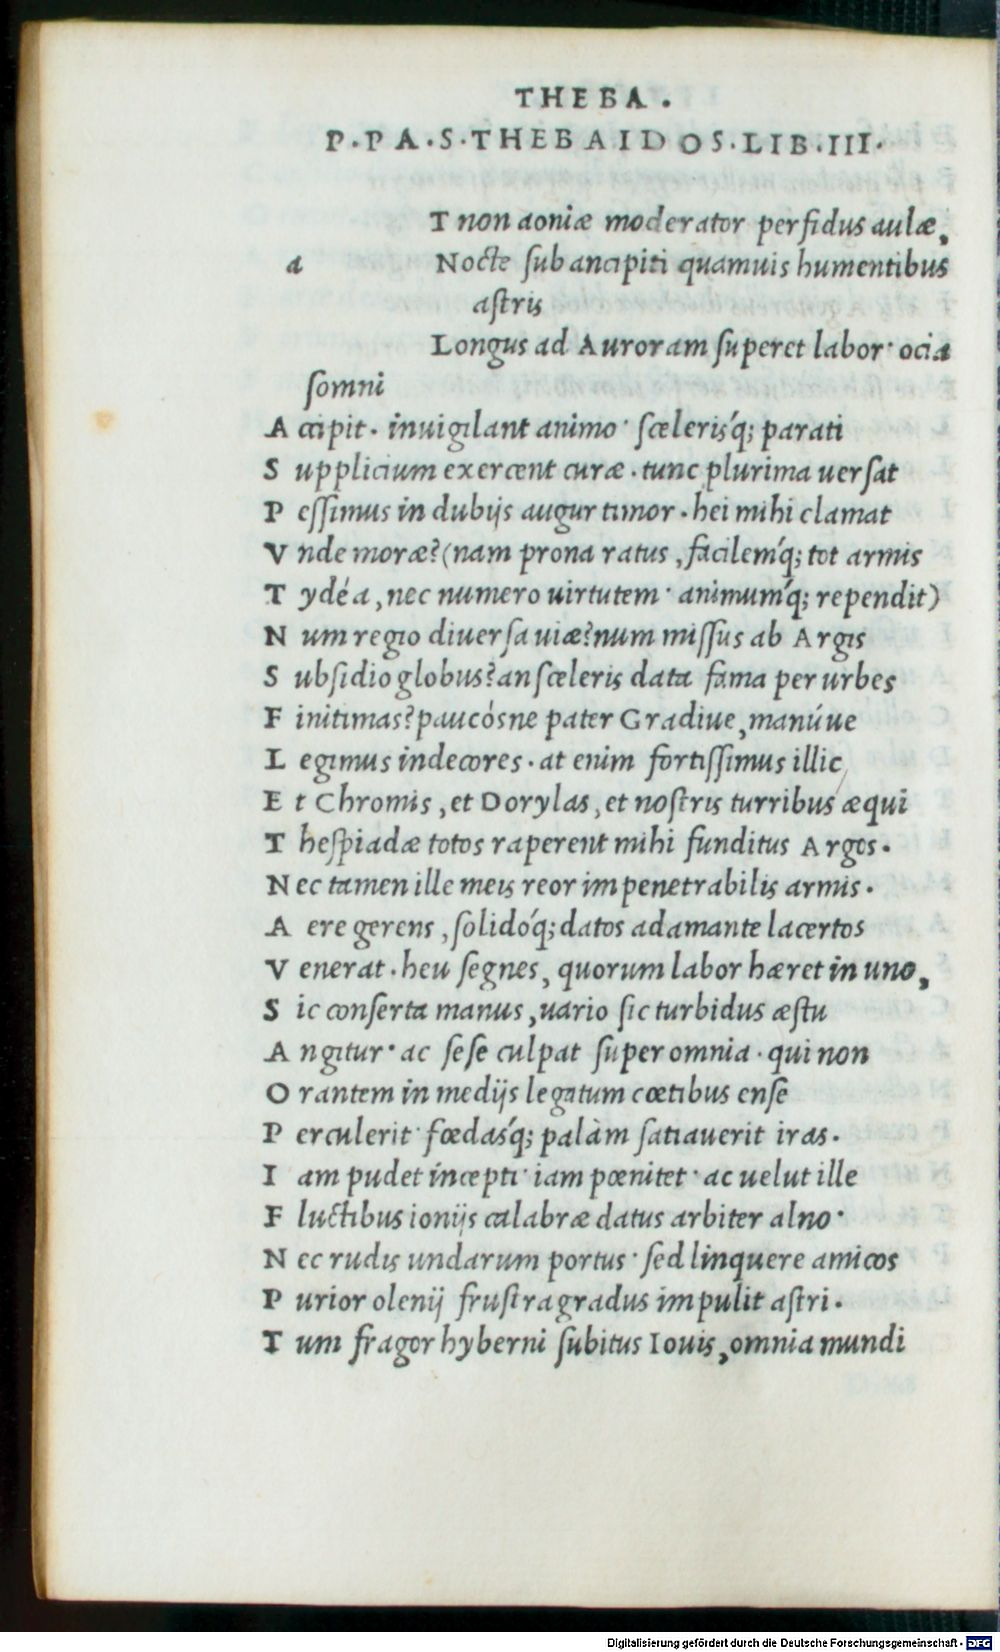 THEBA.
P.PA.S.THEBAIDOS.LIB.III.
T non aoniæ moderator perfidus aulæ,
a Nocte sub ancipiti quamuis humentibus
astris
Longus ad Auroram superet labor· ocia
somni
A ccipit. inuigilant animo· scelerisq́; parati
S upplicium exercent curæ. tunc plurima uersat
P essimus in dubijs augur timor. hei mihi clamat
V nde moræ?(nam prona ratus, facilemq́; tot armis
T ydéa, nec numero uirtutem· animumq́; rependit)
N um regio diuersa uiæ?num missus ab Argis
S ubsidio globus?an sceleris data fama per urbes
F initimas?paucósne pater Gradiue, manúue
L egimus indecores. at enim fortissimus illic
E t Chromis, et Dorylas, et nostris turribus æqui
T hespiadæ totos raperent mihi funditus Argos.
N ec tamen ille meis reor impenetrabilis armis.
A ere gerens, solidóq́; datos adamante lacertos
V enerat. heu segnes, quorum labor hæret in uno,
S ic conserta manus, uario sic turbidus æstu
A ngitur· ac sese culpat super omnia. qui non
O rantem in medijs legatum cœtibus ense
P erculerit· fœdasq́; palàm satiauerit iras.
I am pudet incepti· iam pœnitet· ac uelut ille
F luctibus ionijs calabræ datus arbiter alno·
N ec rudis undarum portus· sed linquere amicos
P urior olenij frustra gradus impulit astri.
T um fragor hyberni subitus Iouis, omnia mundi
Digitalisierung gefördert durch die Deutsche Forschungsgemeinschaft - DFG